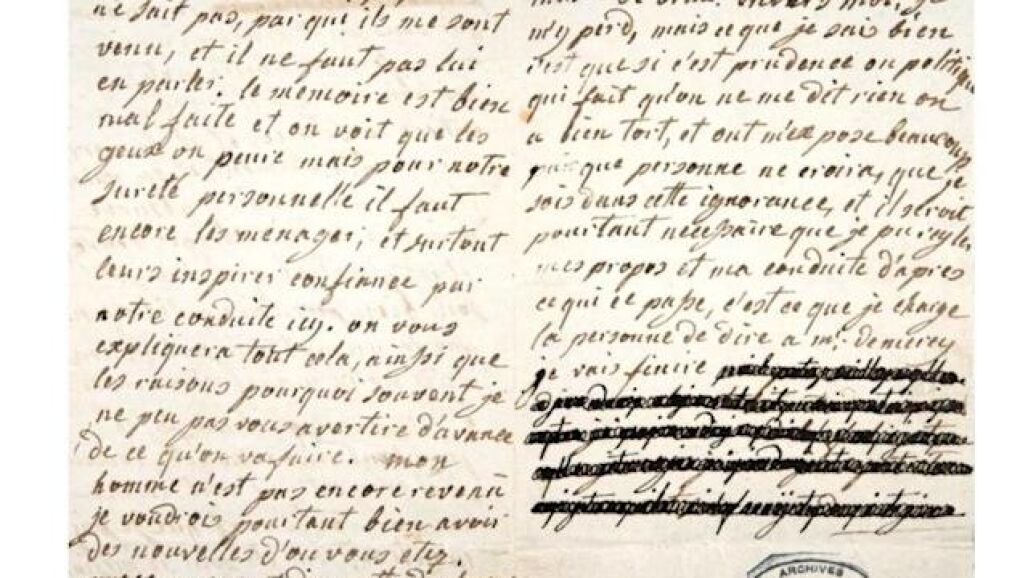 ne sait pas, par qui ils me sont
venu, et il ne faut pas lui
en parler. le memoire est bien
mal faite et on voit que les
geux on peure mais pour notre
sureté personnelle il faut
encore les menager, et surtout
leurs inspirer confiance par
notre conduite icy. on vous
expliquera tout cela, ainsi que
les raisons pourquoi souvent je
ne peu pas vous avertire d'avance
de ce qu'on va faire. mon
homme n'est pas encore revenu
je voudrois pourtant bien avoir
des nouvelles d'ou vous etez.
m'y perd, mais ce que je sais bien
c'est que si c'est prudence ou politique
qui fait qu'on ne me dit rien on
a bien tort, et ont m'expose beaucoup
puisque personne ne croira, que je
sois dans cette ignorance, et il seroit
pourtant necessaire que je pu reigler
mes propos et ma conduite d'apres
ce qui ce passe, c'est ce que je charge
la personne de dire a mr. Demercy
je vais finire
ARCHIVES